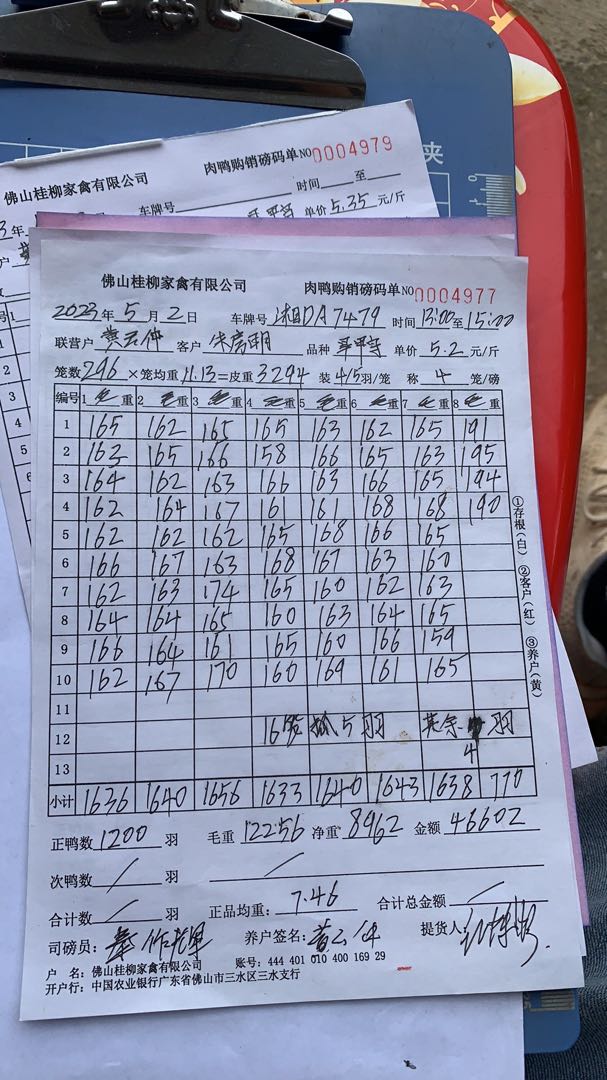 佛山桂柳家禽有限公司 肉鸭购销磅码单NO 0004979
车牌号 时间 至
单价 5.35 元/斤
佛山桂柳家禽有限公司 肉鸭购销磅码单NO 0004977
2023 年 5 月 2 日 车牌号 湘DA7479 时间 13:00 至 15:00
联营户 黄云仲 客户 品种 单价 5.2 元/斤
笼数 296 ×笼均重 11.13 =皮重 3294 装 4/5 羽/笼 称 4 笼/磅
编号 1 毛 重 2 毛 重 3 毛 重 4 毛 重 5 毛 重 6 毛 重 7 毛 重 8 毛 重
1 165 162 165 165 163 162 165 191
2 162 165 166 158 166 165 163 195
3 164 162 163 166 163 166 165 194
4 162 164 167 161 161 168 168 190
5 162 162 162 165 168 166 165
6 166 167 163 168 167 163 160
7 162 163 174 165 160 162 163
8 164 164 165 160 163 164 165
9 166 164 161 165 160 166 159
10 162 167 170 160 169 161 165
11
12 16笼 5羽 其余 羽
13 4
小计 1636 1640 1656 1633 1640 1643 1638 770
正鸭数 1200 羽 毛重 12256 净重 8962 金额 46602
次鸭数 / 羽 /
合计数 / 羽 正品均重: 7.46 合计总金额 /
司磅员: 养户签名: 黄云仲 提货人:
户 名: 佛山桂柳家禽有限公司 账号: 444 401 010 400 169 29
开户行: 中国农业银行广东省佛山市三水区三水支行
①存根(白) ②客户(红) ③养户(黄)